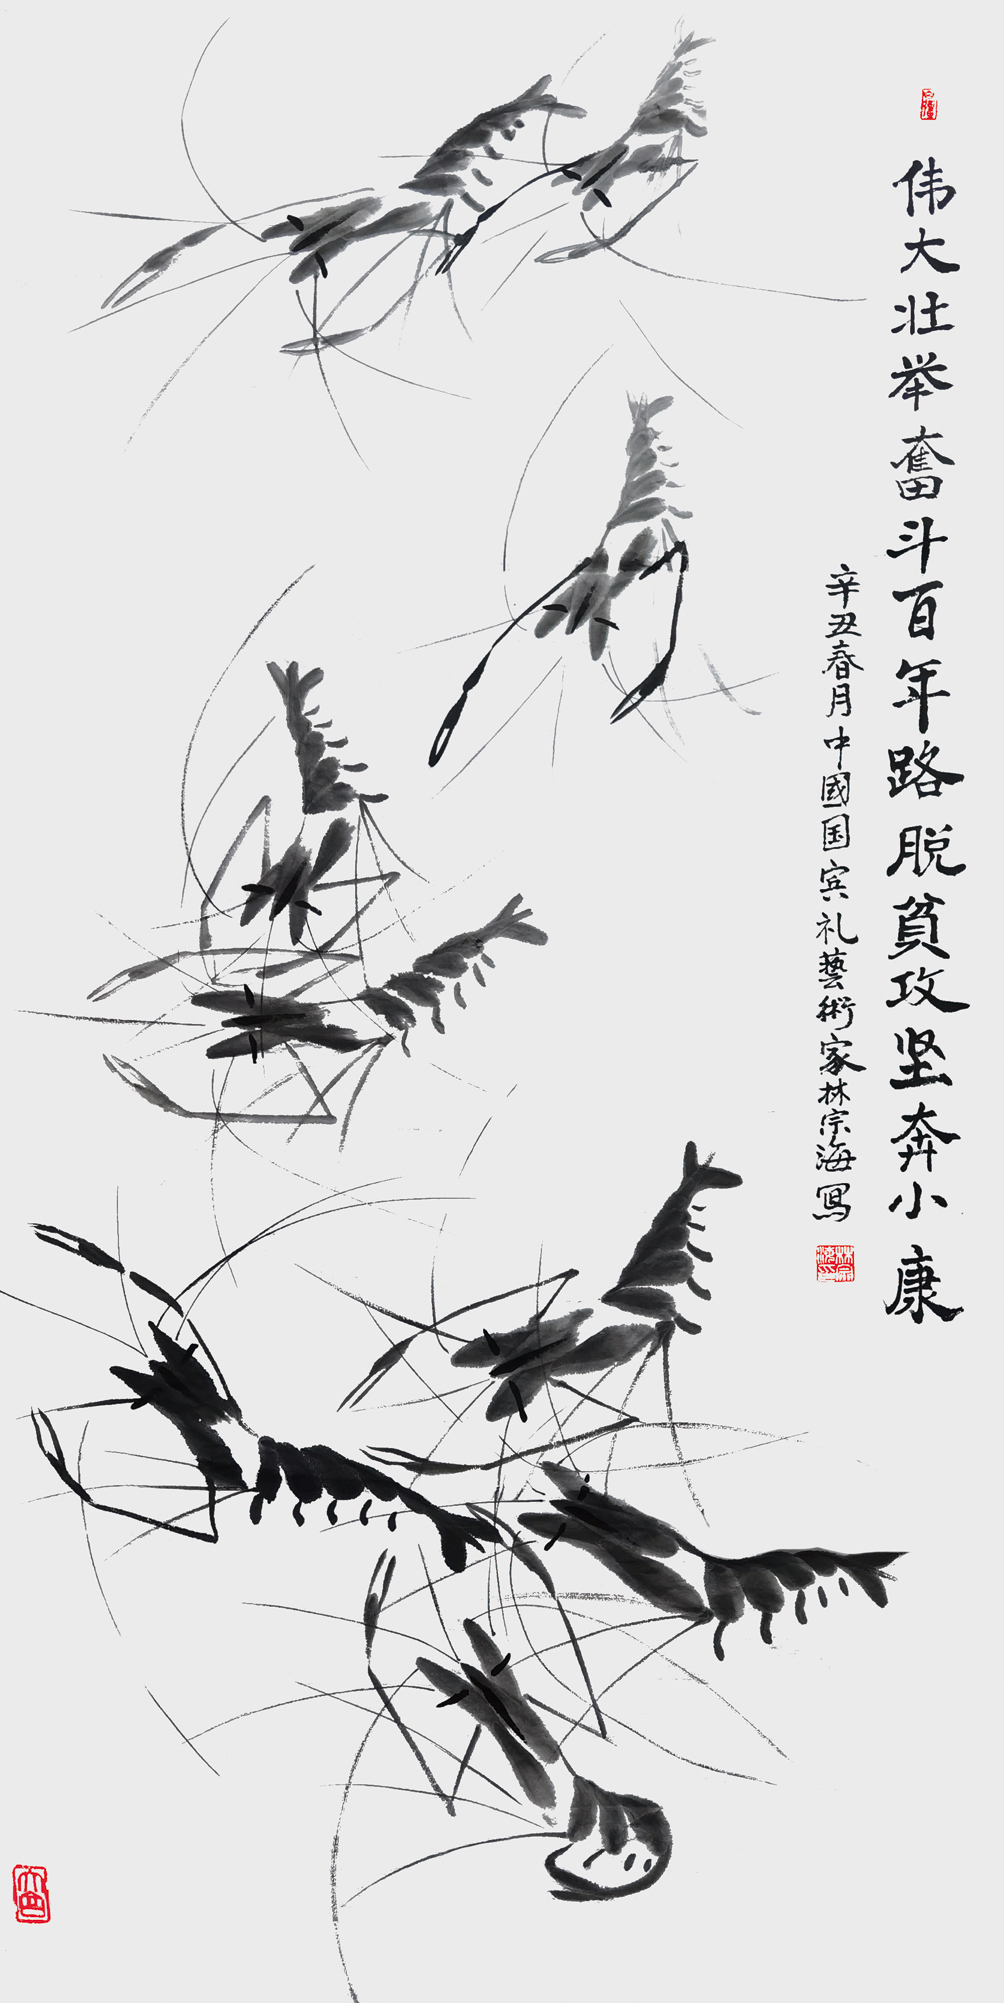 伟大壮举奋斗百年路脱貧攻坚奔小康
辛丑春月中國国宾礼藝術家林宗海寫